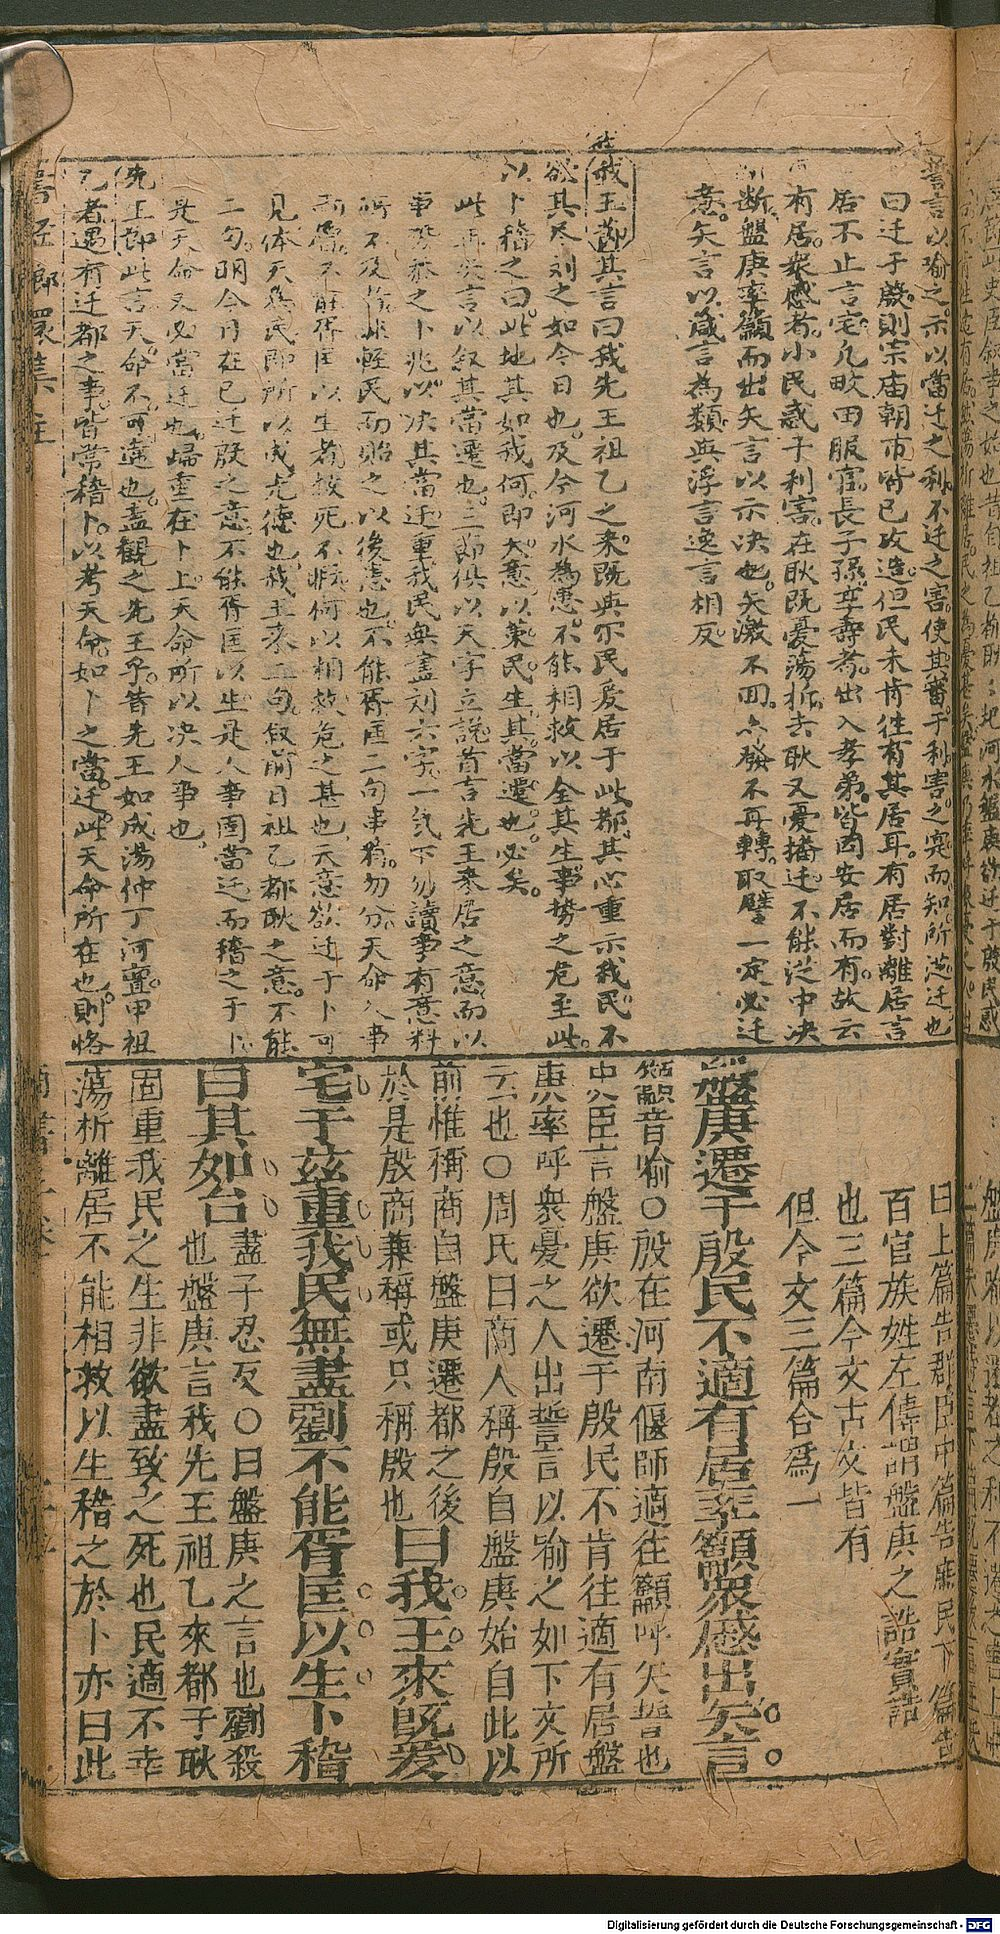 誓言以喻之示以當迁之利不迁之害使其審于利害之實而知所從迁也
曰迁于殷則宗庙朝市皆已改造但民未肯往有其居耳有居對離居言
居不止言宅凡畝田服官長子孫至壽考出入孝弟皆因安居而有故云
有居衆慼者小民惑于利害在耿既憂蕩析去耿又憂播迁不能從中决
断盤庚率籲而出矢言以示决也矢激不回亦發不再轉取譬一定必迁
意矢言以箴言為類與浮言逸言相反
我王節其言曰我先王祖乙之來既與尔民爰居于此都其心重示我民不
欲其尽刘之如今日也及今河水為患不能相救以全其生事势之危至此
以卜稽之曰此地其如我何即天意以棄民生其當遷也必矣
此再發言以叙其當遷也三節俱以天字立說首言先王來居之意而以
事 之卜兆以决其當迁重我民無盡刘六字一气下勿讀事有意料
所不及 輕民而貽之以後患也不能胥匡二句事猶勿分天命人事
不能胥匡以生者救死不 何以相救危之甚也天意欲迁于卜可
見体天為民即所以成尤德也我王來二句叙前日祖乙都耿之意不能
二句明今日在已迁殷之意不能胥匡以生是人事固當迁而稽之于卜
是天命又必當迁也歸重在卜上天命所以决人事也
先王節此言天命不可違也盍觀之先王乎昔先王如成湯仲丁河亶甲祖
乙者遇有迁都之事皆嘗稽卜以考天命如卜之當迁此天命所在也則恪
曰上篇告群臣中篇告庶民下篇告
百官族姓左傳謂盤庚之誥實誥
也三篇今文古文皆有
但今文三篇合爲一
盤庚遷于殷民不適有居率籲衆慼出矢言
籲音喻〇殷在河南偃師適往籲呼矢誓也
史臣言盤庚欲遷于殷民不肯往適有居盤
庚率呼衆憂之人出誓言以喻之如下文所
云也〇周氏曰商人稱殷自盤庚始自此以
前惟稱商自盤庚遷都之後
於是殷商兼稱或只稱殷也曰我王來既爰
宅于茲重我民無盡劉不能胥匡以生卜稽
曰其如台盡子忍反〇曰盤庚之言也劉殺
也盤庚言我先王祖乙來都于耿
固重我民之生非欲盡致之死也民適不幸
蕩析離居不能相救以生稽之於卜亦曰此
Digitalisierung gefördert durch die Deutsche Forschungsgemeinschaft - DFG